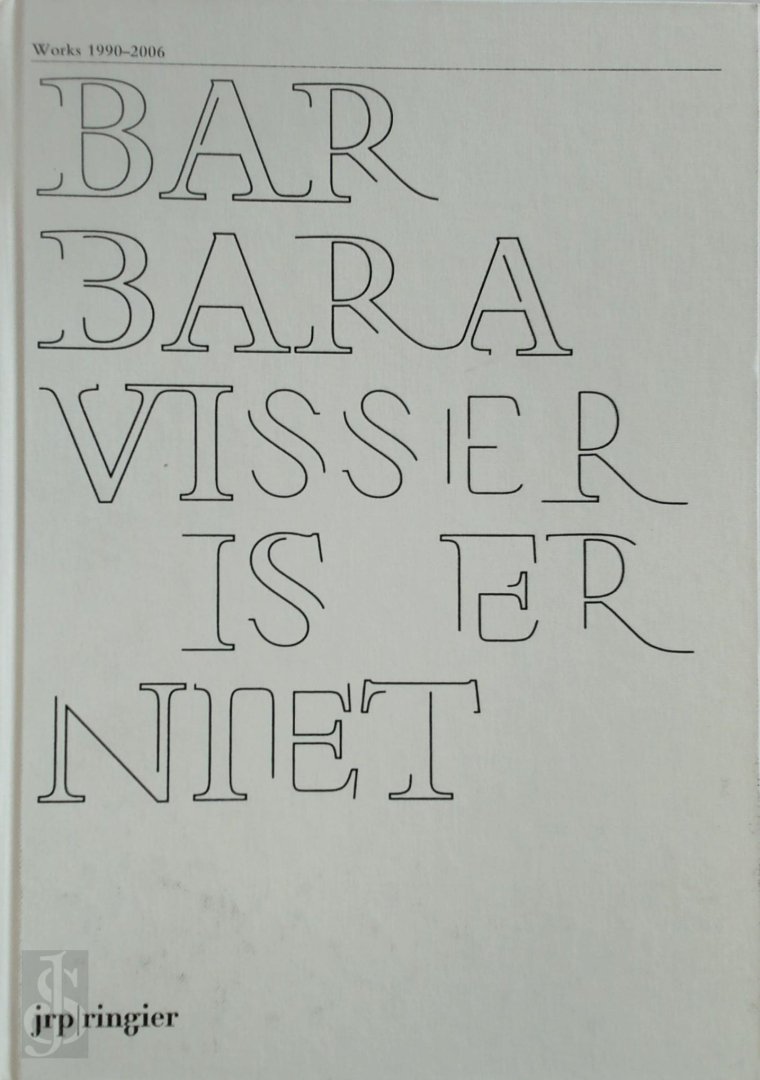 Works 1990–2006
BAR
BARA
VISSER
IS ER
NIET
jrp|ringier